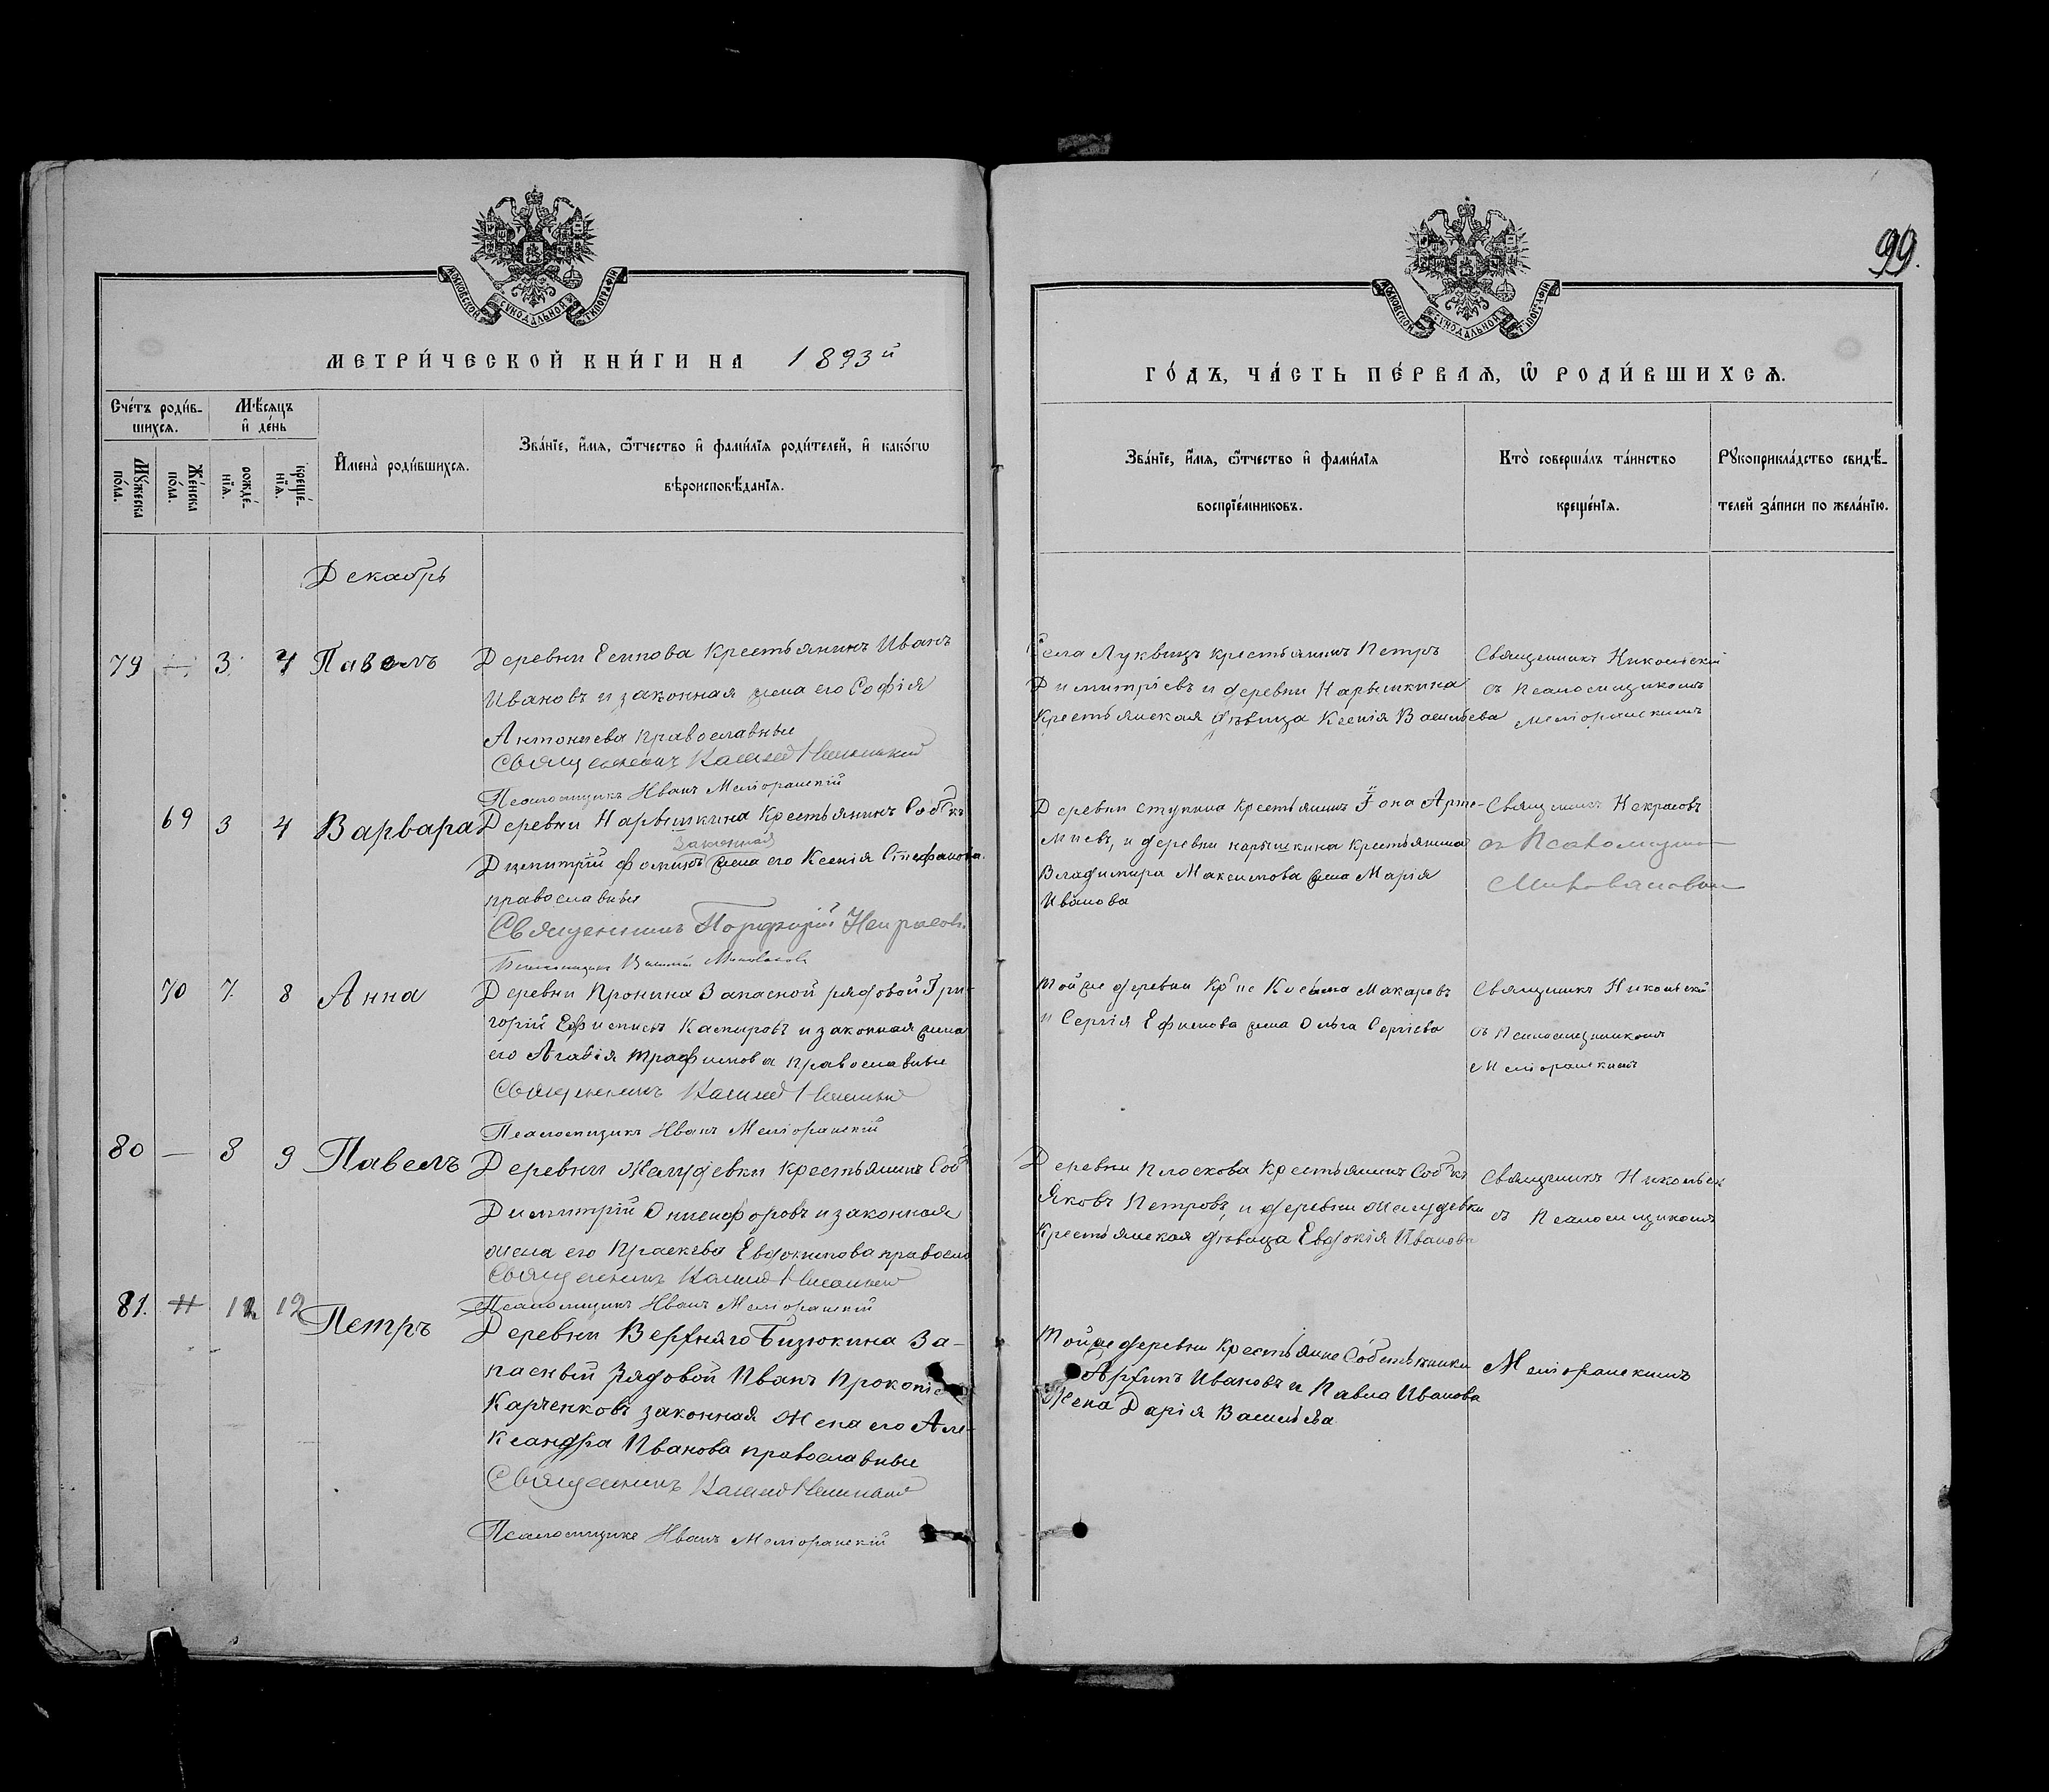 99.
МОСКОВСКОЙ СѴНОДАЛЬНОЙ ТИПОГРАФІИ
МОСКОВСКОЙ СѴНОДАЛЬНОЙ ТИПОГРАФІИ
МЕТРИ́ЧЕСКОЙ КНИ́ГИ НА 1893й
ГО́ДЪ, ЧА́СТЬ ПЕ́РВАѦ, Ѡ РОДИ́ВШИХСѦ.
Сче́тъ роди́в-
шихсѧ.
Мѣ́сѧцъ
и де́нь
Мꙋ́жеска по́ла.
Же́нска по́ла.
рожде́-нїѧ.
креще́-нїѧ.
Имена̀ роди́вшихсѧ.
Зва́нїе, и́мѧ, ѻ́тчество и фами́лїѧ роди́телей, и како́гѡ
вѣроисповѣ́данїѧ.
Зва́нїе, и́мѧ, ѻ́тчество и фами́лїѧ
воспрїе́мниковъ.
Кто̀ соверша́лъ та́инство
креще́нїѧ.
Рꙋкоприкла́дство свидѣ́-
телей за́писи по жела́нїю.
Декабрь
79 — 3 4 Павелъ
Деревни Есипова Крестьянинъ Иванъ
Ивановъ и законная жена его Софія
Антониева православные
Священникъ
Псаломщикъ Иванъ Меліоранскій
Села Луквицъ крестьянинъ Петръ
Димитріевъ и деревни Нарышкина
Крестьянская дѣвица Ксенія Васильева
Священникъ Никольскій
съ Псаломщикомъ
Меліоранскимъ
69 3 4 Варвара
Деревни Нарышкина Крестьянинъ Собкъ
законная
Димитрій Фоминъ жена его Ксенія Стефанова
православные
Священникъ Порфирій Некрасовъ
Псаломщикъ
Деревни Ступина крестьянинъ Іона Арте-
миевъ, и деревни нарышкина крестьянина
Владимира Максимова жена Марія
Иванова
Священникъ Некрасовъ
съ Псаломщико
70 7. 8 Анна
Деревни Пронина Запасной рядовой Гри-
горій Ефимовъ и законная жена
его Агафія Трафимова православные
Священникъ
Псаломщикъ Иванъ Меліоранскій
Той же деревни Косьма Макаровъ
и Сергія Ефимова жена Ольга Сергіева
Священникъ Никольскій
съ Псаломщикомъ
Меліоранскимъ
80 — 8 9 Павелъ
Деревни Желудевки крестьянинъ Соб
Димитрій Онисифоровъ и законная
жена его Праскева Евдокимова правосла
Священникъ
Псаломщикъ Иванъ Меліоранскій
Деревни Плоскова Крестьянинъ Собкъ
Яковъ Петровъ, и деревни желудевки
Крестьянская дѣвица Евдокія Иванова
Священникъ Никольск
съ Псаломщикомъ
81. 12 Петръ
Деревни Верхняго Бизюкина За-
пасный рядовой Иванъ Прокопіе
Карченковъ законная Жена его Але-
ксандра Иванова православные
Священникъ
Псаломщикъ Иванъ Меліоранскій
Той же деревни Крестьяне Собственники
Архипъ Ивановъ и Павла Иванова
Жена Дарія Васильева
Меліоранскимъ